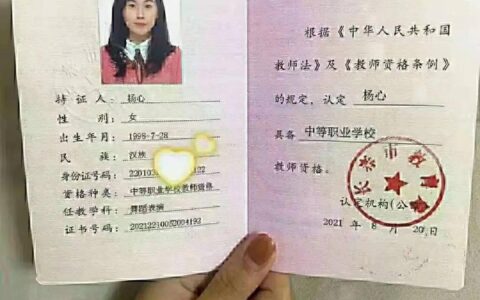 持证人 杨心
性别 女
出生年月 1998-7-28
民族 汉族
身份证号码
资格种类 中等职业学校教师资格
任教学科 舞蹈表演
证书号码 20212210052004192
根据《中华人民共和国
教师法》及《教师资格条例》
的规定,认定 杨心
具备 中等职业学校
教师资格。
长春市教育局
认定机构(公章)
2021 年 8 月 20 日